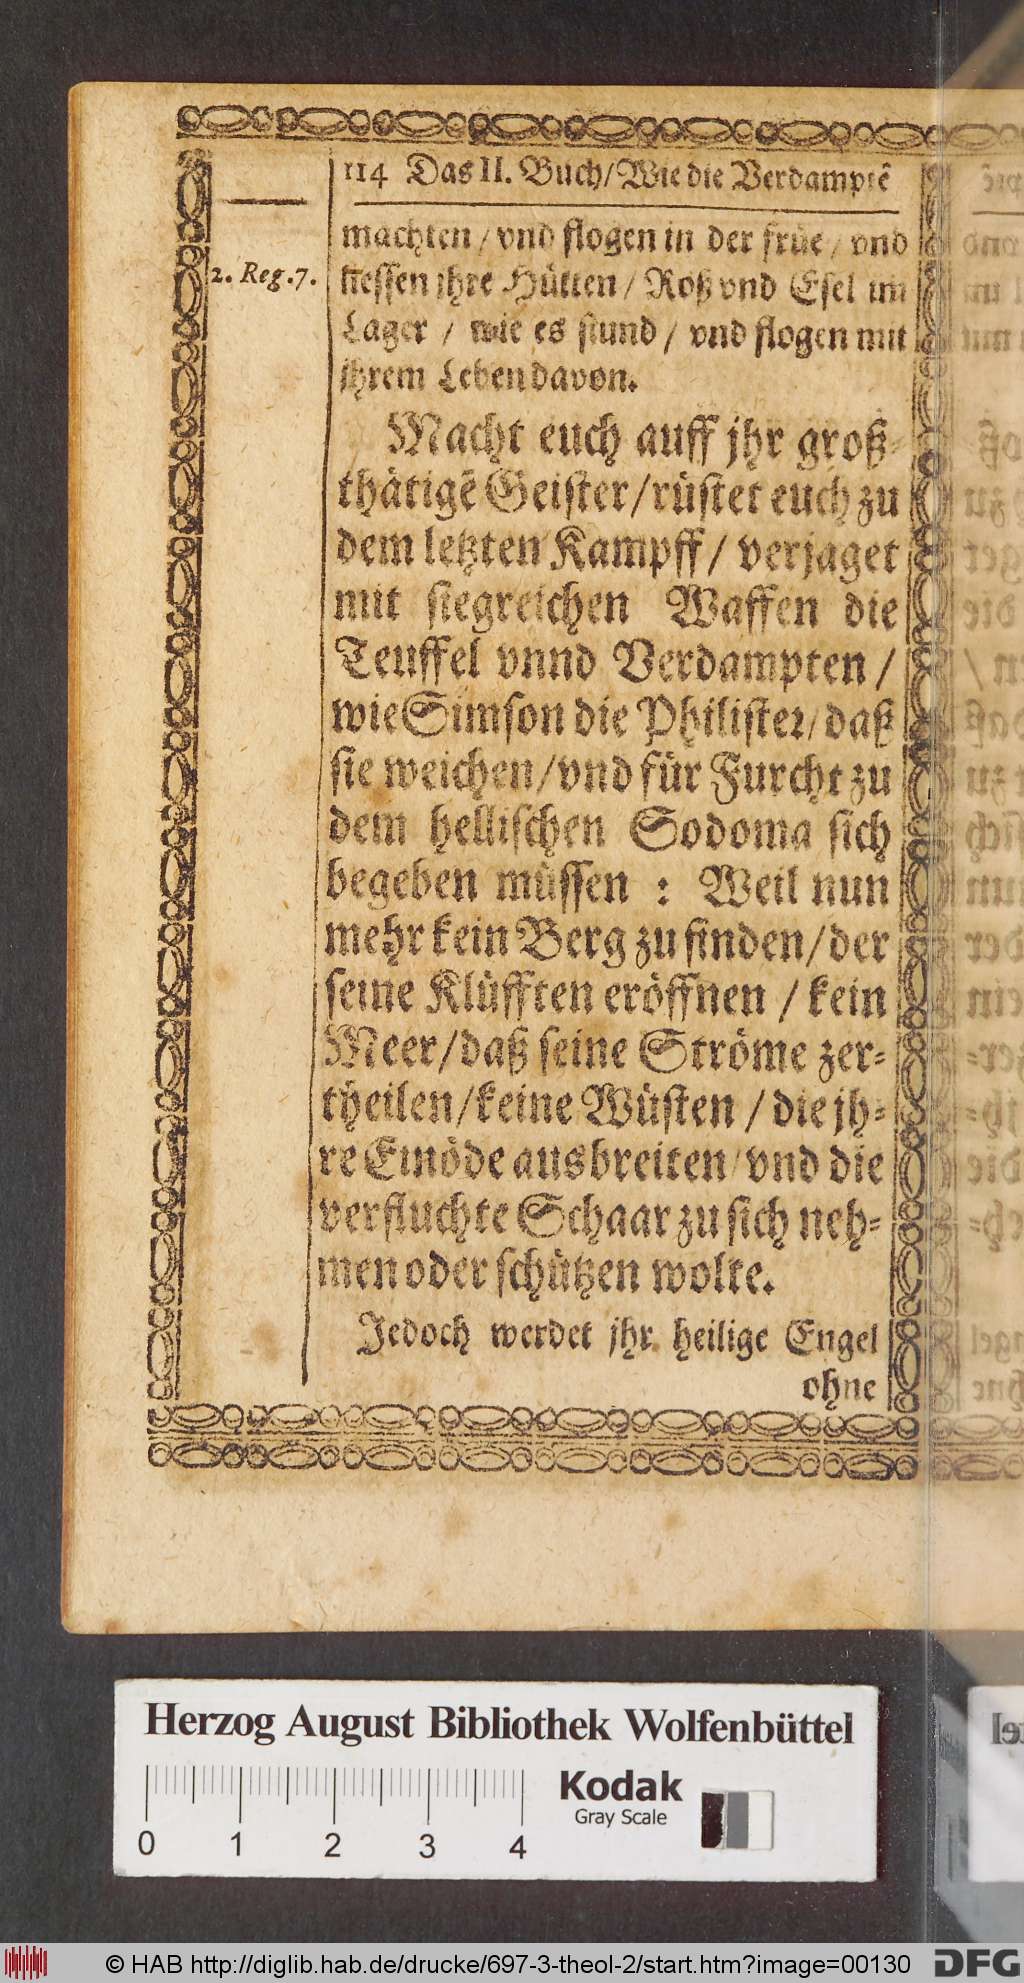 114 Das II. Buch/Wie die Verdamptẽ
machten / vnd flogen in der früe / vnd
2. Reg. 7.
liessen jhre Hütten / Roß vnd Esel im
Lager / wie es stund / vnd flogen mit
jhrem Leben davon.
Macht euch auff jhr groß-
thätigẽ Geister/rüstet euch zu
dem letzten Kampff / verjaget
mit siegreichen Waffen die
Teuffel vnnd Verdampten /
wie Simson die Philister/daß
sie weichen/vnd für Furcht zu
dem hellischen Sodoma sich
begeben müssen : Weil nun
mehr kein Berg zu finden/der
seine Klüfften eröffnen / kein
Meer/daß seine Ströme zer-
theilen/keine Wüsten / die jh-
re Einöde ausbreiten/vnd die
verfluchte Schaar zu sich neh-
men oder schützen wolte.
Jedoch werdet jhr heilige Engel
ohne
Herzog August Bibliothek Wolfenbüttel
Kodak
Gray Scale
0 1 2 3 4
© HAB http://diglib.hab.de/drucke/697-3-theol-2/start.htm?image=00130
DFG